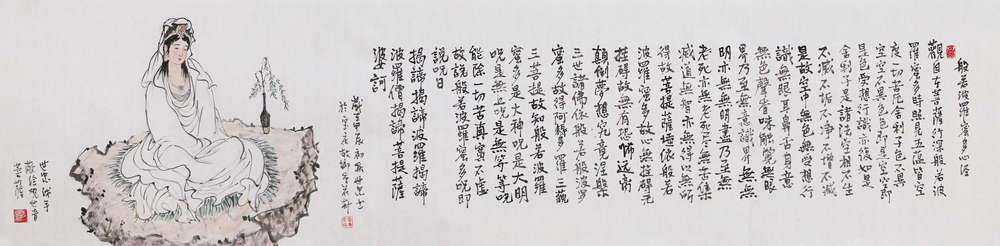 般若波羅蜜多心經
觀自在菩薩行深般若波
羅蜜多時照見五蘊皆空
度一切苦厄舍利子色不異
空空不異色色即是空空即
是色受想行識亦復如是
舍利子是諸法空相不生
不滅不垢不淨不增不減
是故空中無色無受想行
識無眼耳鼻舌身意
無色聲香味觸法無眼
界乃至無意識界乃至無無
明亦無無明盡乃至無
老死亦無老死盡無苦集
滅道無智亦無得以無所
得故菩提薩埵依般若
波羅蜜多故心無罣礙無
罣礙故無有恐怖遠離
顛倒夢想究竟涅槃
三世諸佛依般若波羅
蜜多故得阿耨多羅三藐
三菩提故知般若波羅
蜜多是大神咒是大明
咒是無上咒是無等等咒
能除一切苦真實不虛
故說般若波羅蜜多咒即
說咒曰
揭諦揭諦波羅揭諦
波羅僧揭諦菩提薩
婆訶
敬繪觀世音
菩薩